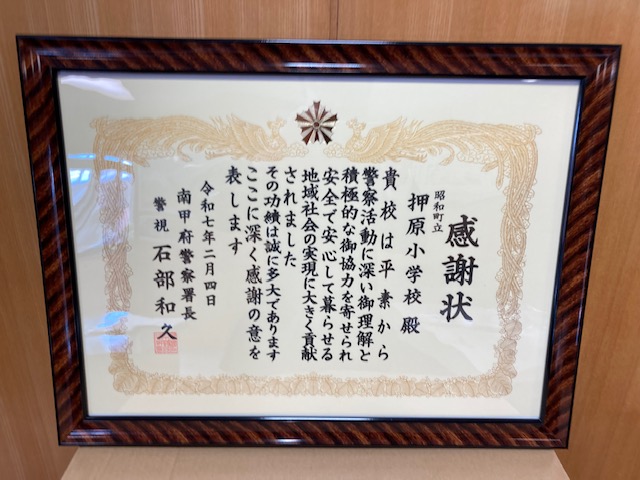 感謝状
昭和町立
押原小学校殿
貴校は平素から
警察活動に深い御理解と
積極的な御協力を寄せられ
安全で安心して暮らせる
地域社会の実現に大きく貢献
されました
その功績は誠に多大であります
ここに深く感謝の意を
表します
令和七年二月四日
南甲府警察署長
警視 石部和久